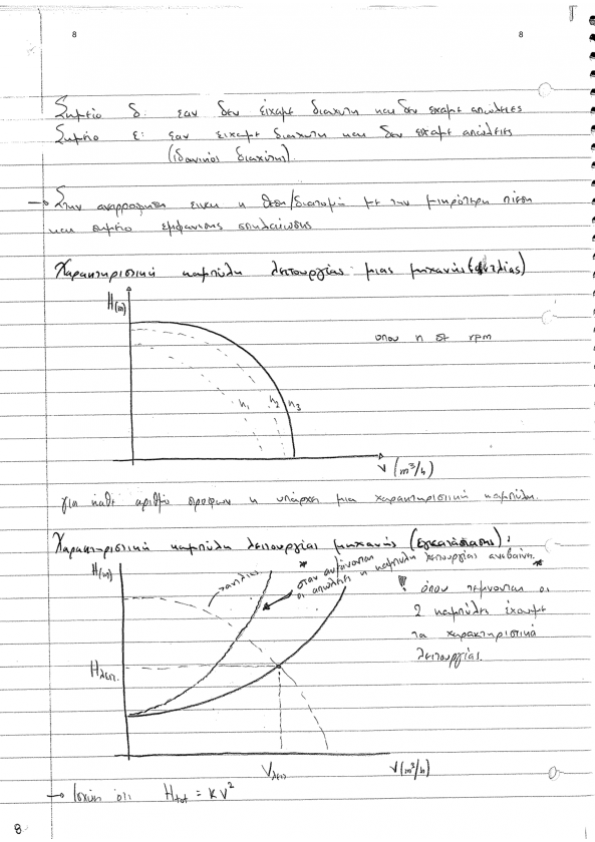 8 8
Σημείο δ: εαν δεν είχαμε διαχυτη και δεν εχαμε απώλειες
Σημείο ε: εαν ειχαμε διαχυτη και δεν εχαμε απώλειες
(ιδανικός διαχύτης).
→ Στην αναρροφηση ειναι η θεση/διατομή με την μικρότερη πίεση
και σημείο εμφανισης σπηλαίωσης
Χαρακτηριστική καμπύλη λειτουργίας μιας μηχανής (αντλίας)
H(m)
οπου n σε rpm
n1 n2 n3
V (m³/h)
για κάθε αριθμό στροφων η υπάρχη μια χαρακτηριστική καμπύλη.
Χαρακτηριστική καμπύλη λειτουργίας μηχανής (εγκατάστασης):
H(m)
* οταν αυξάνονται
οι απωλειες η καμπύλη λειτουργίας ανεβαίνει *
! όπου τέμνονται οι
2 καμπύλη έχουμε
τα χαρακτηριστικά
λειτουργίας.
Hλειτ.
Vλειτ
V(m³/h)
→ Ισχύη ότι Htot = KV²
8